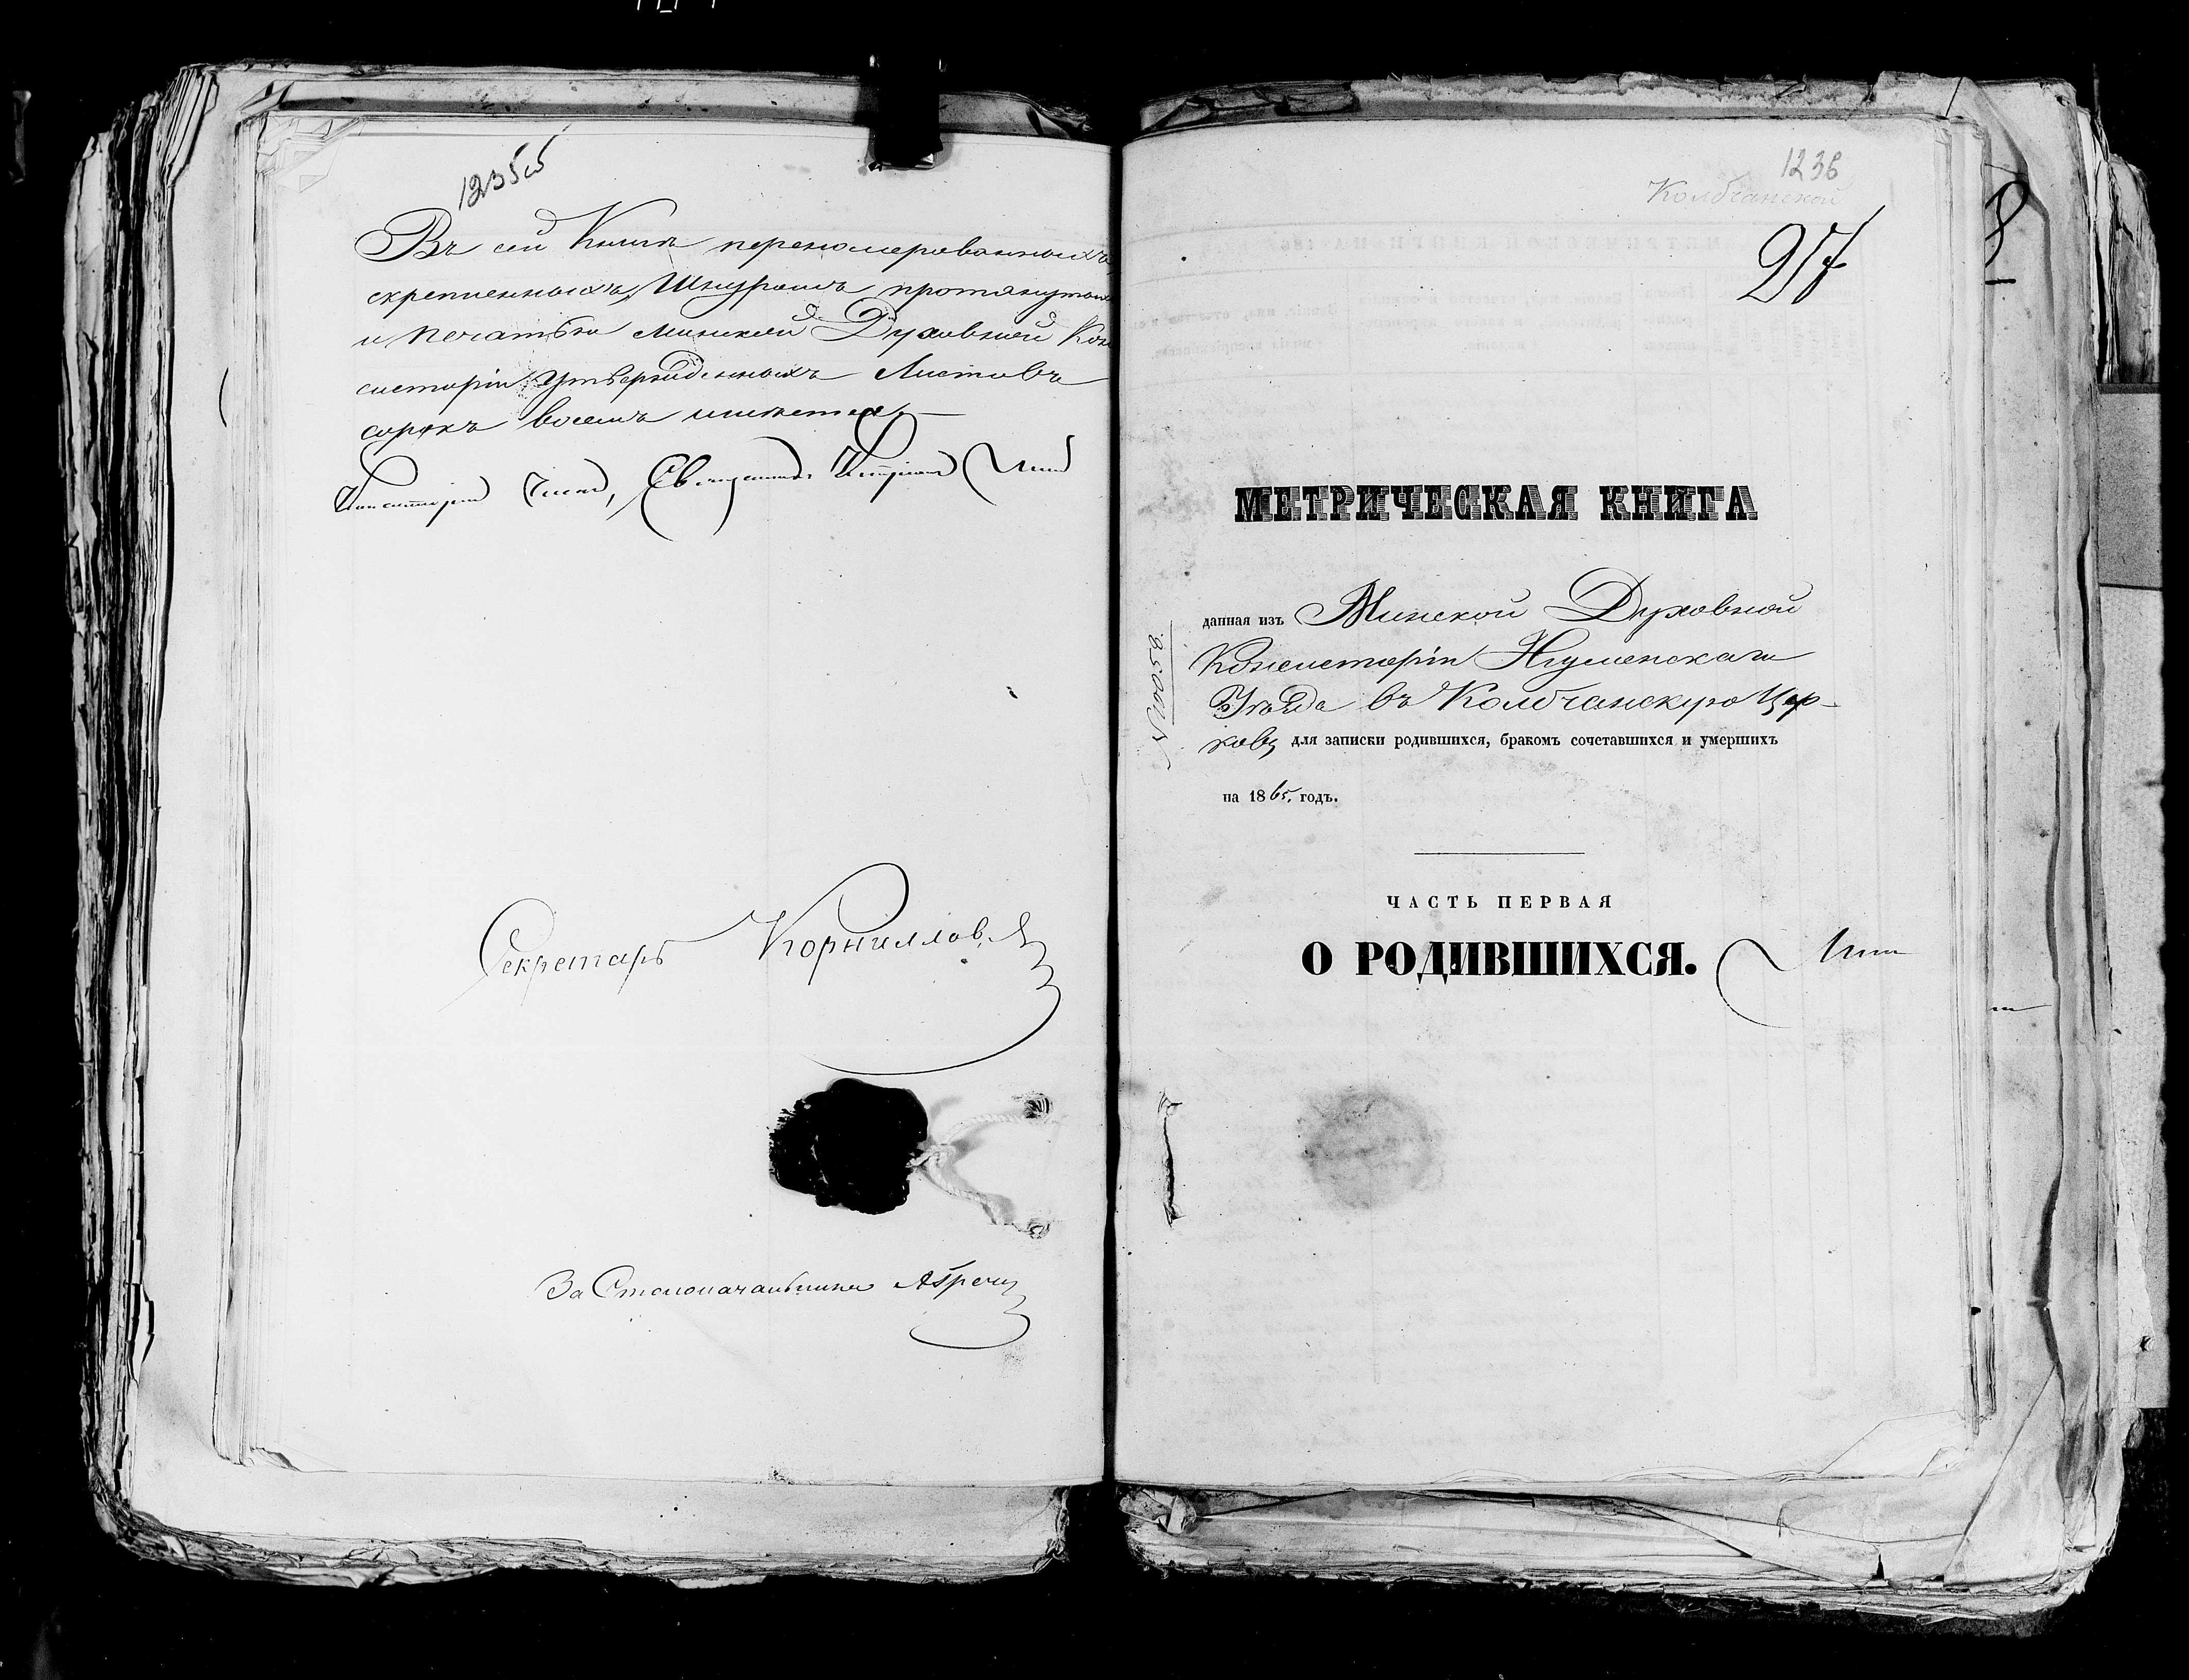 1235об
Въ сей Книгѣ перенумерованныхъ
скрепленныхъ, Шнуромъ протянутыхъ
и печатью Минской Духовной Кон
систоріи утвержденныхъ Листовъ
сорокъ восемь имѣется.
Консисторіи Членъ, Священникъ
Секретарь Корнилловъ
За Столоначальника
1236
Колбчанской
97
МЕТРИЧЕСКАЯ КНИГА
данная изъ Минской Духовной
Консисторіи Игуменскаго
Уѣзда въ Колбчанскую Цер-
ковь для записки родившихся, бракомъ сочетавшихся и умершихъ
на 1865. годъ.
ЧАСТЬ ПЕРВАЯ
О РОДИВШИХСЯ.